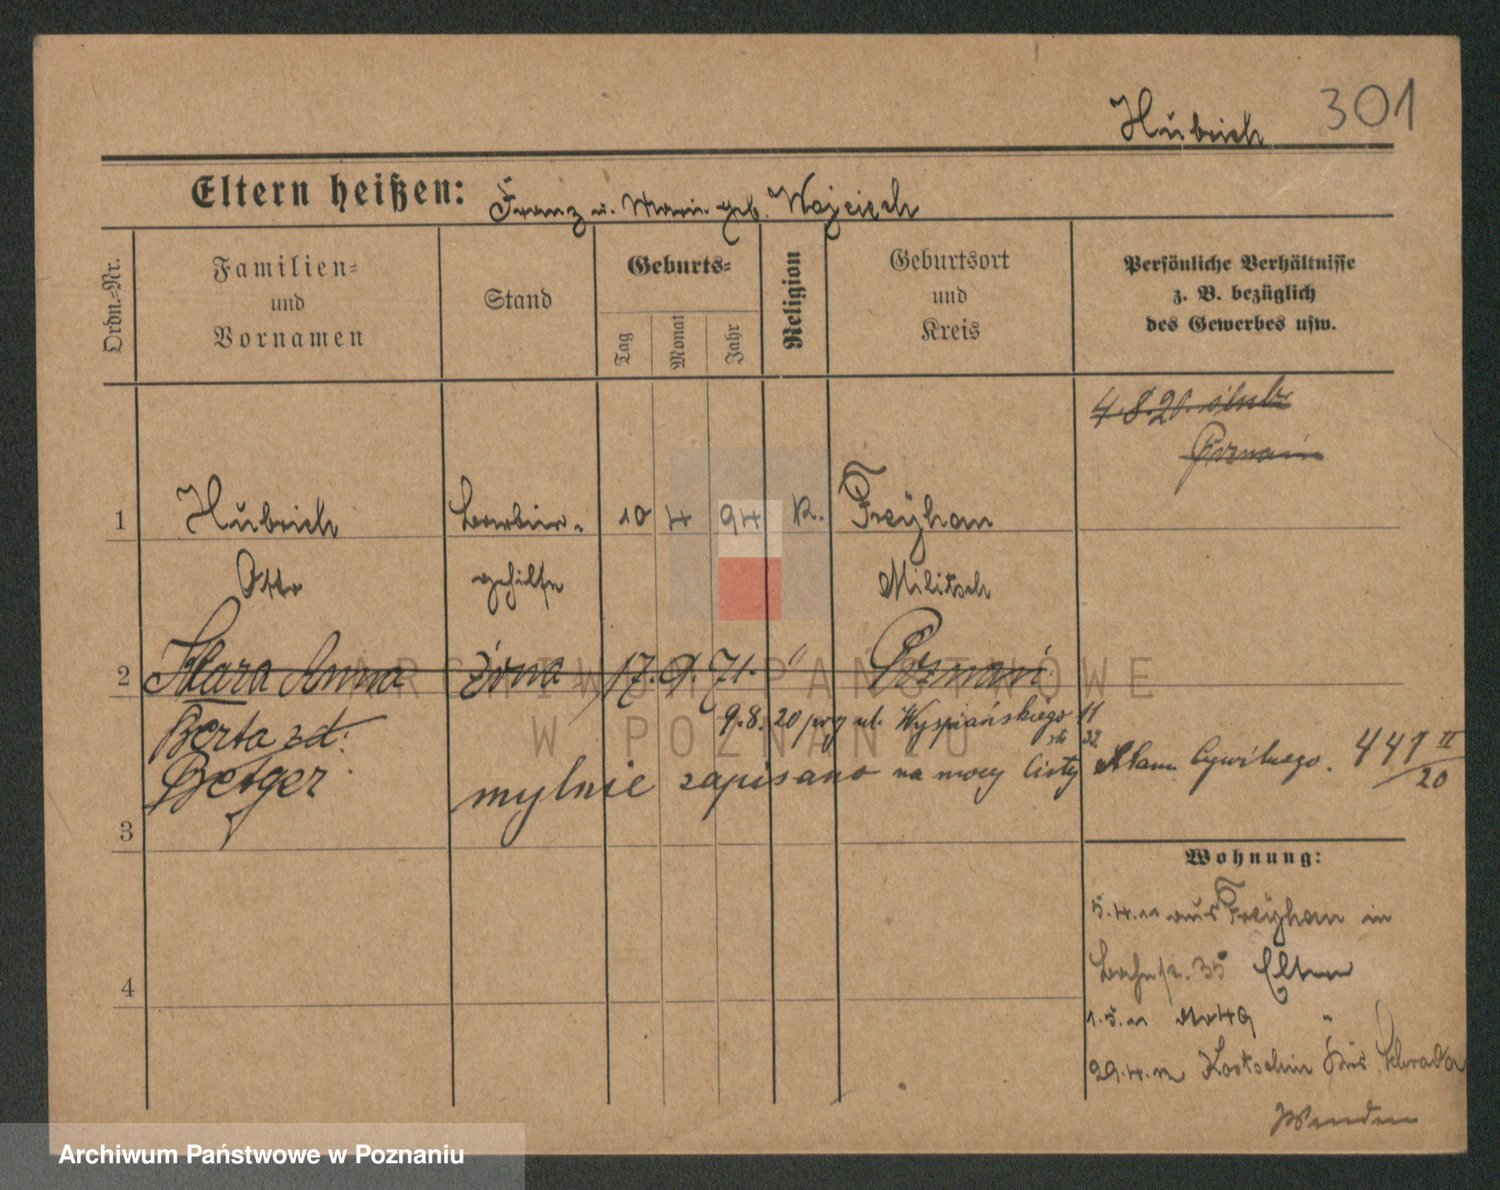 Hubrich 301
Eltern heißen: Franz u. Marie geb. Wojciech
Ordn.-Nr.
Familien-
und
Vornamen
Stand
Geburts-
Tag
Monat
Jahr
Religion
Geburtsort
und
Kreis
Persönliche Verhältnisse
z. B. bezüglich
des Gewerbes usw.
4.8.20. ślub
Poznań
1 Hubrich Barbier- 10 4 94 K. Freyhan
Otto gehilfe Militsch
2 Klara Anna żona 17. 9. 71. " Poznań
Berta zd.
Berger
9.8.20 przy ul. Wyspiańskiego 11
mylnie zapisano na mocy listy Stanu Cywilnego. 441 II/20
3
4
Wohnung:
5.4.11 aus Freyhan in
35 Eltern
1.5.11 49 "
29.4.12 Kostschin
Wenden
ARCHIWUM PAŃSTWOWE
W POZNANIU
Archiwum Państwowe w Poznaniu